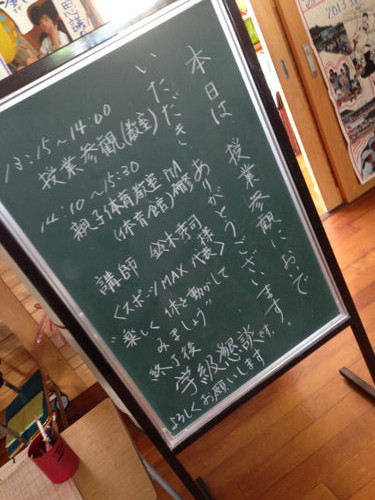 本日は 授業参観においで
いただき ありがとうございます。
13:15〜14:00
授業参観(教室)
14:10〜15:30
親子体育教室 PTA研修
(体育館)
講師 鈴木孝司様
<スポーツMAX代表>
"楽しく 体を動かして
みましょう"
終了後
学級懇談です。
よろしくお願いします